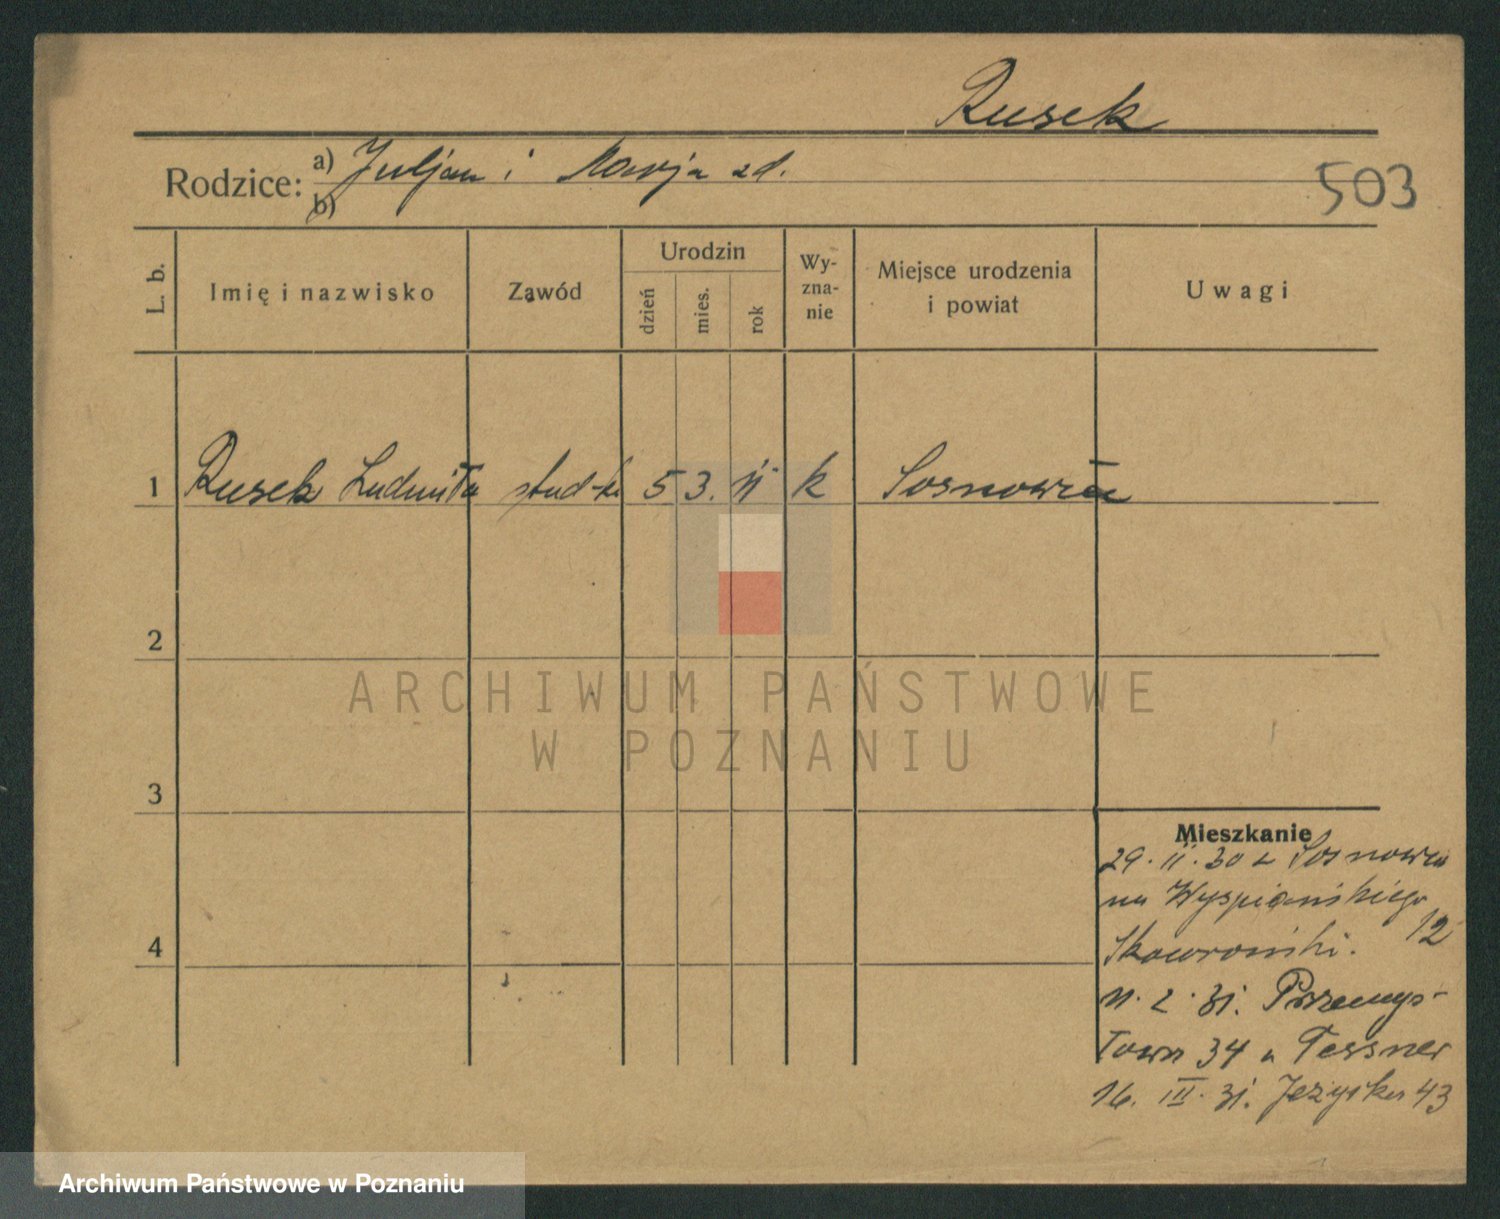 Rusek
Rodzice: a) Juljan i Marja zd.
b)
503
L. b.
Imię i nazwisko
Zawód
Urodzin
dzień
mies.
rok
Wy-
zna-
nie
Miejsce urodzenia
i powiat
Uwagi
1 Rusek Ludmiła stud-ka 5 3. 11 k Sosnowiec
2
3
4
Mieszkanie
29. II. 30 z Sosnowca
na Wyspiańskiego
12
Skowroński.
11. 2. 31. Przemys-
łowa 34 u Tessner
16. III. 31. Jeżycka 43
ARCHIWUM PAŃSTWOWE
W POZNANIU
Archiwum Państwowe w Poznaniu